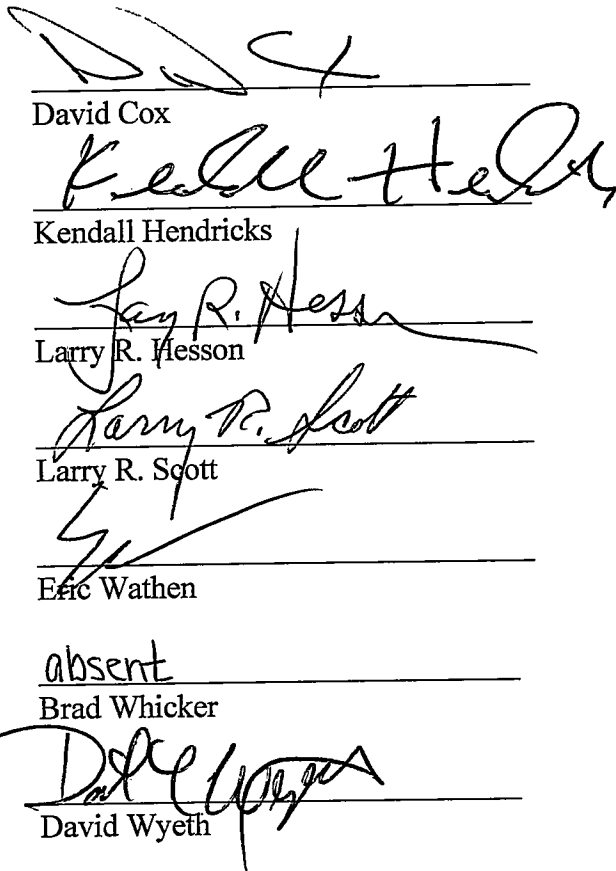 David Cox
Kendall Hendricks
Kendall Hendricks
Larry R. Hesson
Larry R. Hesson
Larry R. Scott
Larry R. Scott
Eric Wathen
absent
Brad Whicker
David Wyeth